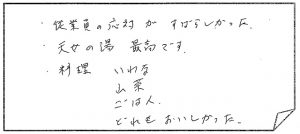 ・従業員の応対がすばらしかった。
・天女の湯 最高です。
・料理 いわな
山菜
ごはん、
どれもおいしかった。